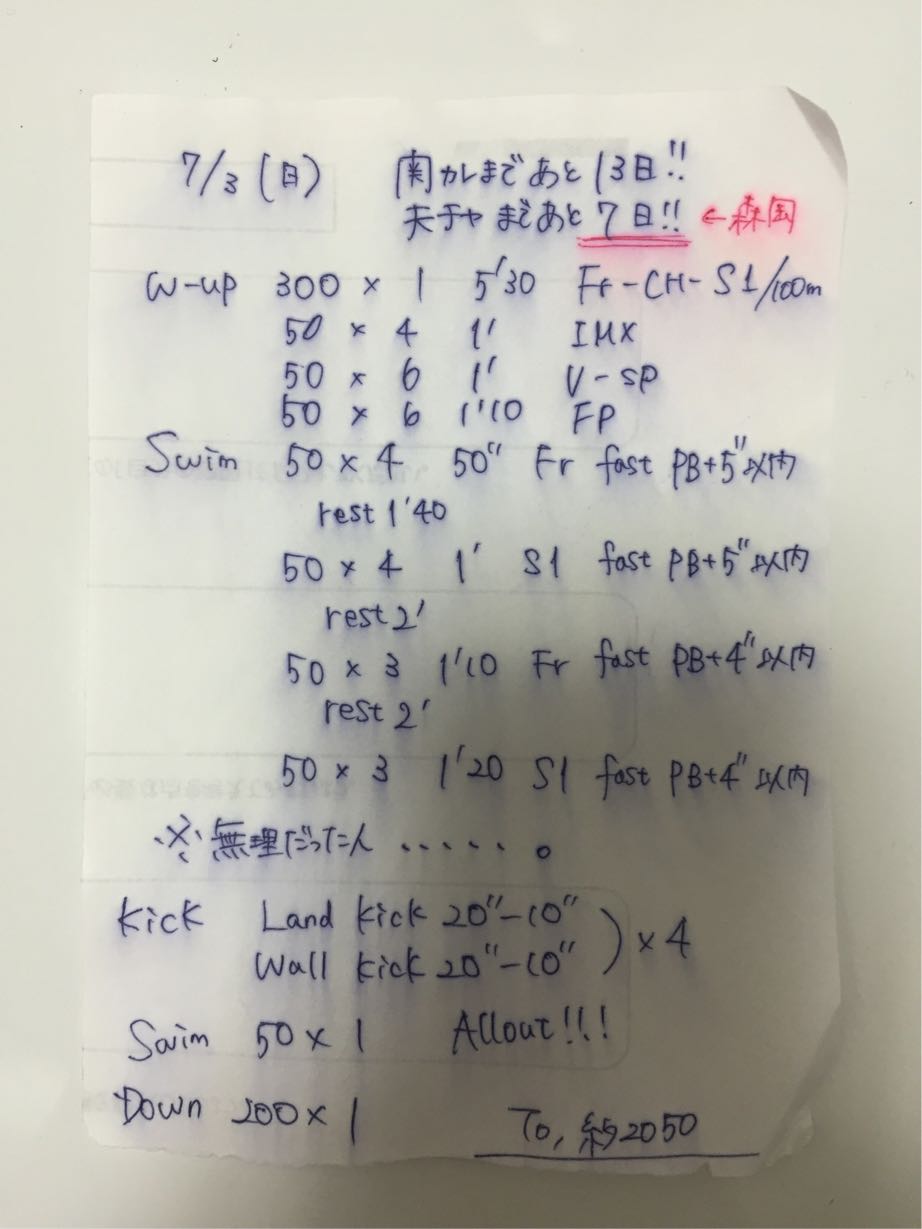 7/3 (日) 関カレまであと13日!!
天チャまであと7日!! ←森岡
W-up 300 × 1 5'30 Fr-CH-S1/100m
50 × 4 1' IMX
50 × 6 1' V-SP
50 × 6 1'10 FP
Swim 50 × 4 50" Fr fast PB+5"以内
rest 1'40
50 × 4 1' S1 fast PB+5"以内
rest 2'
50 × 3 1'10 Fr fast PB+4"以内
rest 2'
50 × 3 1'20 S1 fast PB+4"以内
※無理だった人 ・・・・・。
Kick Land kick 20"-10"
Wall kick 20"-10" ) × 4
Swim 50 × 1 Allout!!!
Down 200 × 1
To, 約2050